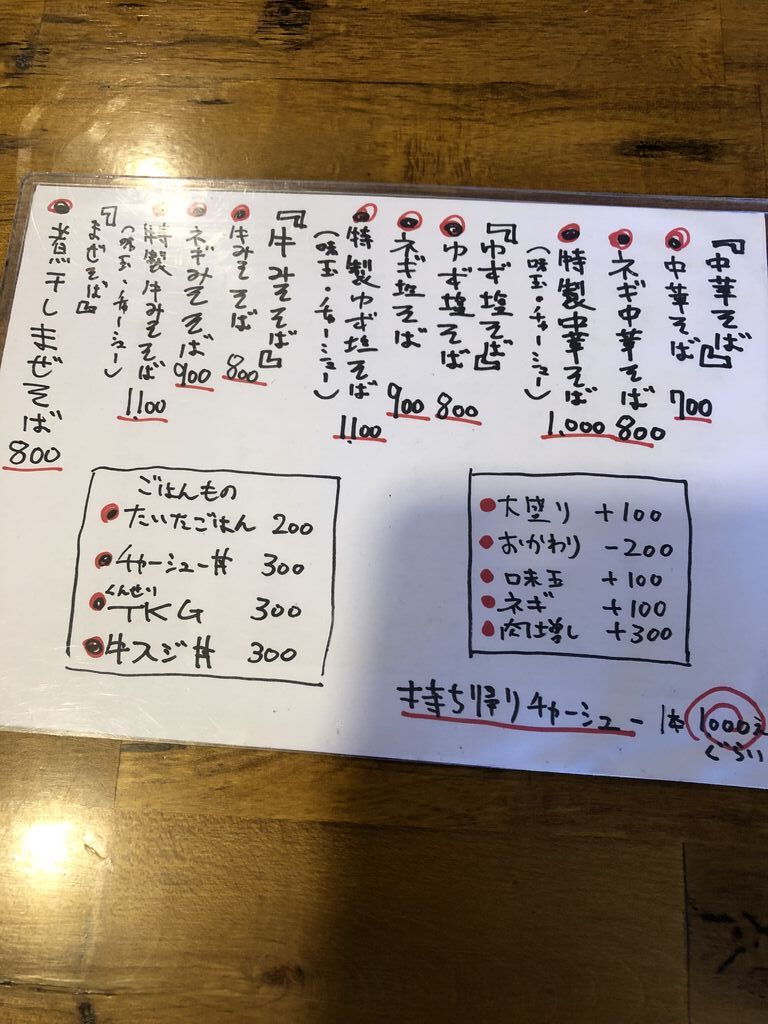 『中華そば』
中華そば 700
ネギ中華そば 800
特製中華そば 1,000
(味玉・チャーシュー)
『ゆず塩そば』
ゆず塩そば 800
ネギ塩そば 900
特製ゆず塩そば 1,100
(味玉・チャーシュー)
『牛みそそば』
牛みそそば 800
ネギみそそば 900
特製牛みそそば 1,100
(味玉・チャーシュー)
『まぜそば』
煮干しまぜそば 800
ごはんもの
たいたごはん 200
チャーシュー丼 300
くんせい
TKG 300
牛スジ丼 300
大盛り +100
おかわり -200
味玉 +100
ネギ +100
肉増し +300
持ち帰りチャーシュー 1本 1000え
ぐらい